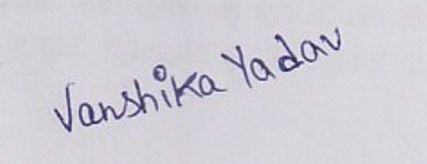 Vanshika Yadav